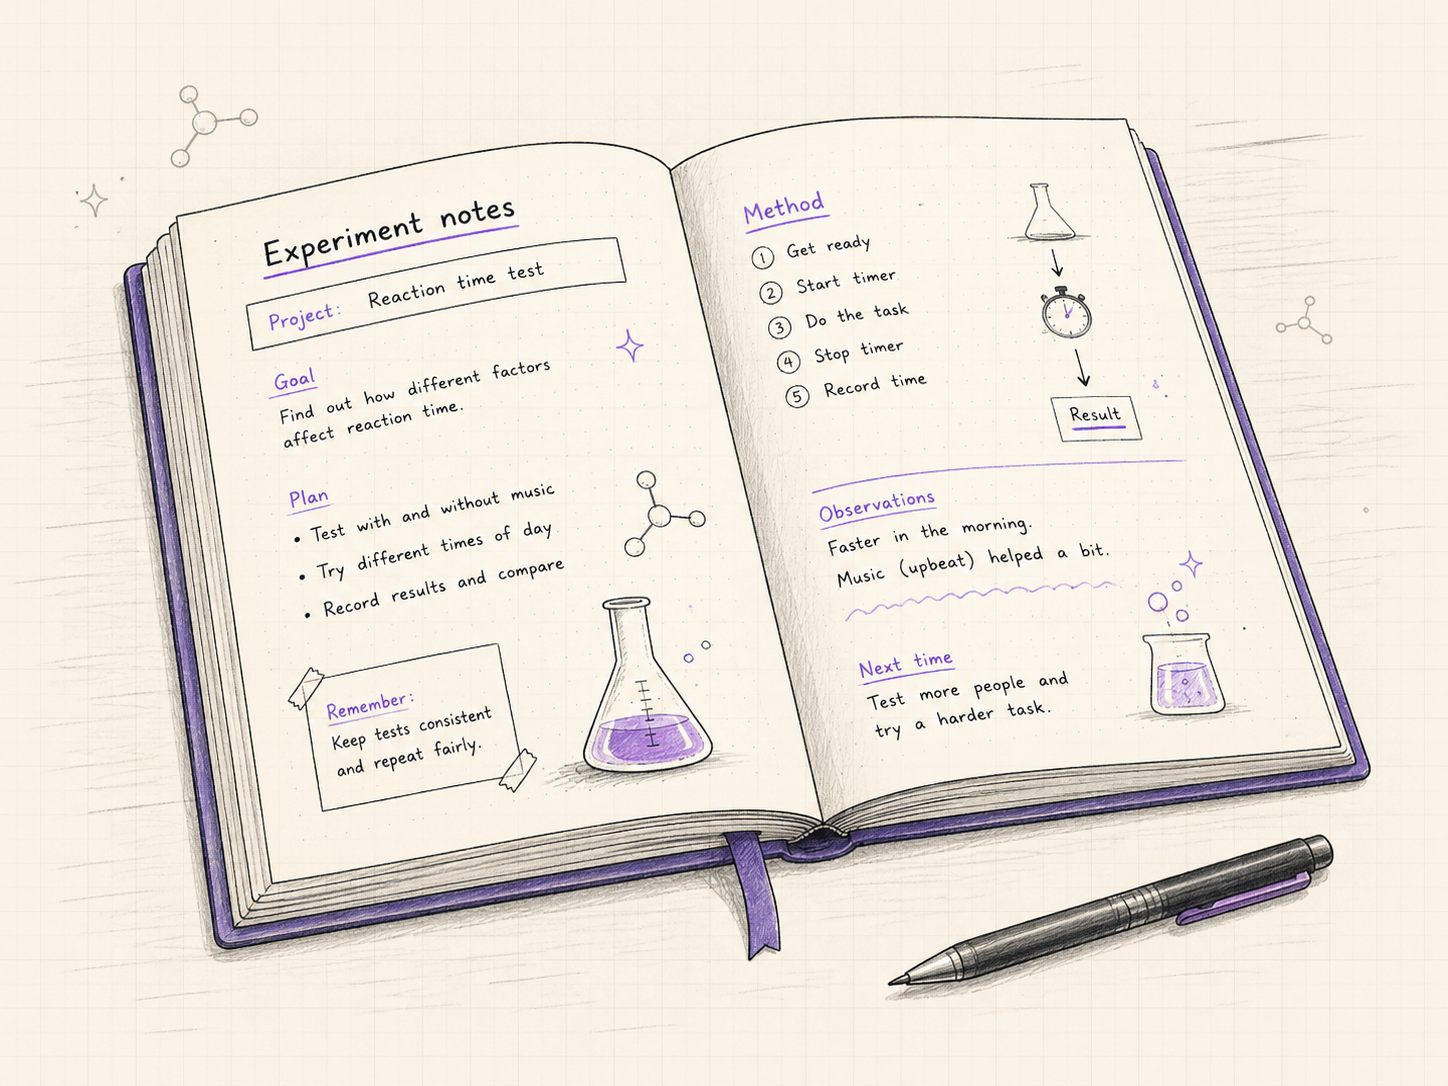 Experiment notes
Project: Reaction time test
Goal
Find out how different factors
affect reaction time.
Plan
• Test with and without music
• Try different times of day
• Record results and compare
Remember:
Keep tests consistent
and repeat fairly.
Method
1 Get ready
2 Start timer
3 Do the task
4 Stop timer
5 Record time
Result
Observations
Faster in the morning.
Music (upbeat) helped a bit.
Next time
Test more people and
try a harder task.